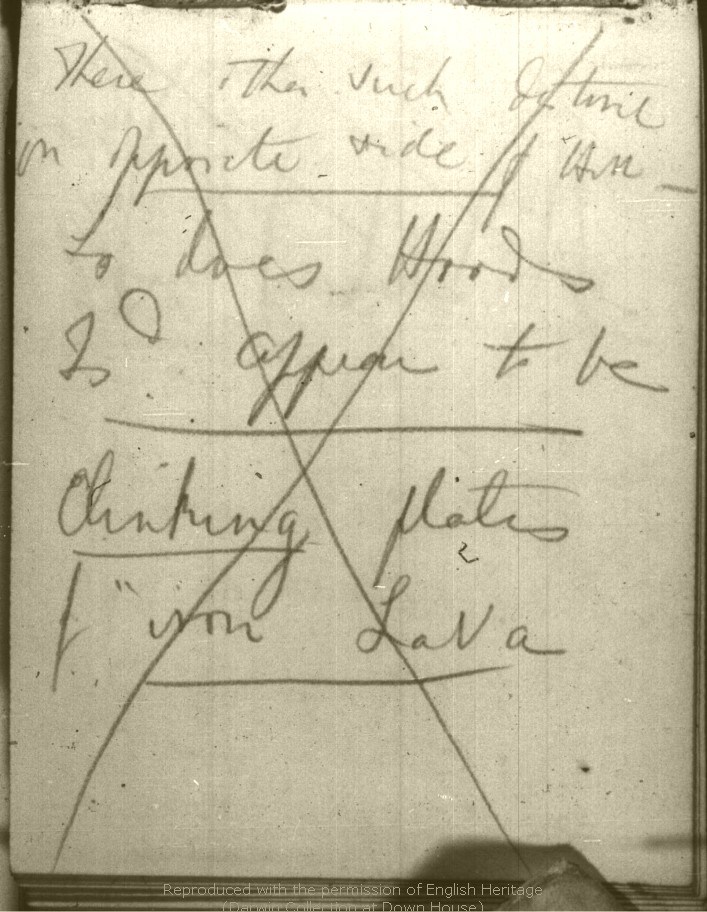 There other such
on opposite side of Hill —
So does Hoods
Isd appear to be
Clinking plates
of "iron Lava
Reproduced with the permission of English Heritage
(Darwin Collection at Down House)